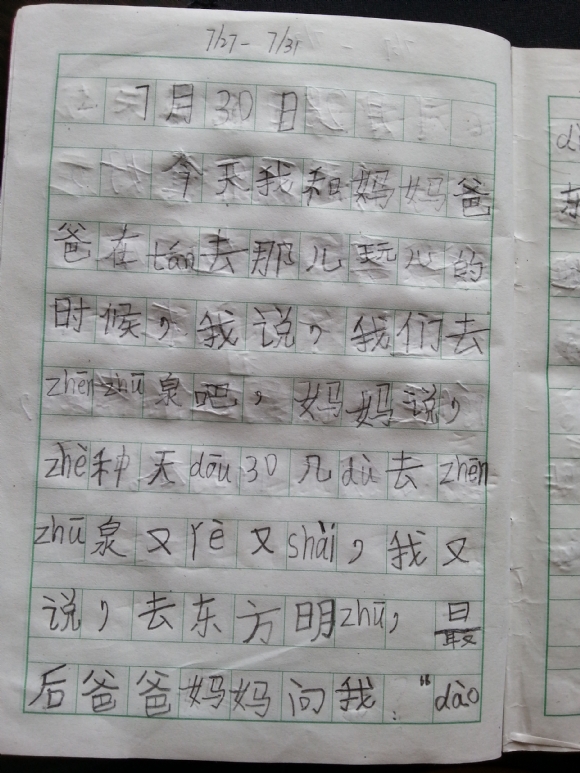 7/27 - 7/31
7月30日
今天我和妈妈爸
爸在tán去那儿玩儿的
时候，我说，我们去
zhēn zhū泉吧，妈妈说，
zhè种天dāu30几dù去zhēn
zhū泉又rè又shài，我又
说，去东方明zhū，最
后爸爸妈妈问我：“dào